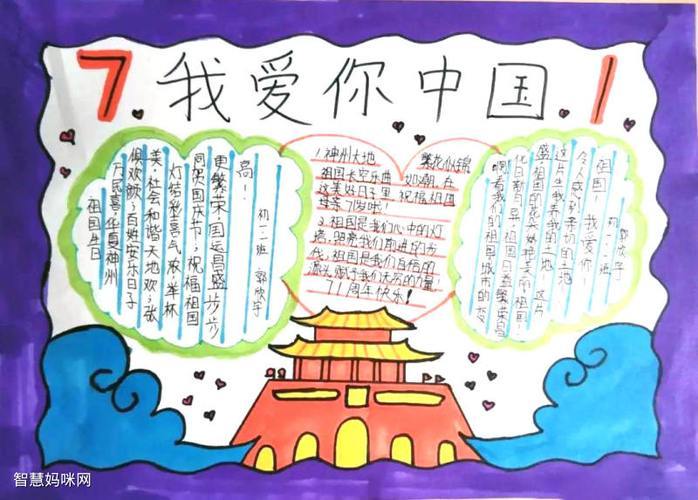 7 我爱你中国 1
祖国生日
万民喜,华夏神州
俱欢颜;百姓安乐日子
美,社会和谐天地欢;张
灯结彩喜气浓,举杯
同贺国庆节;祝福祖国
更繁荣,国运昌盛步步
高!
初一二班 郭欣宇
1.神州大地 繁花似锦,
祖国长空乐曲 如潮,在
这美好日子里,祝福祖国
母亲71岁啦!
2.祖国是我们心中的灯
塔,照亮我们前进的步
伐,祖国是我们自信的
源头,赋予我们无穷的力量!
71周年快乐!
啊,看我们的祖国城市的变
化日新月异,祖国日益繁荣昌
盛,祖国的花美 美的祖国!
这片生我养我的土地 这片
令人感到亲切的土地
祖国! 我爱你!
初一二班
郭欣宇
智慧妈咪网